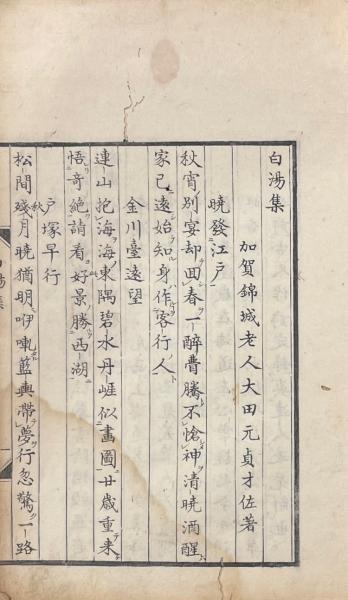 白湯集
加賀錦城老人大田元貞才佐著
曉發江戸
秋宵別宴却回春一醉瞢騰不愴神清曉酒醒
家已遠始知身作客行人
金川臺遠望
連山抱海海東隅碧水丹崕似畫圖廿歳重来
悟奇絶請看好景勝西湖
戸塚早行
松間殘月曉猶明咿喇藍輿帶夢行忽驚一路
秋